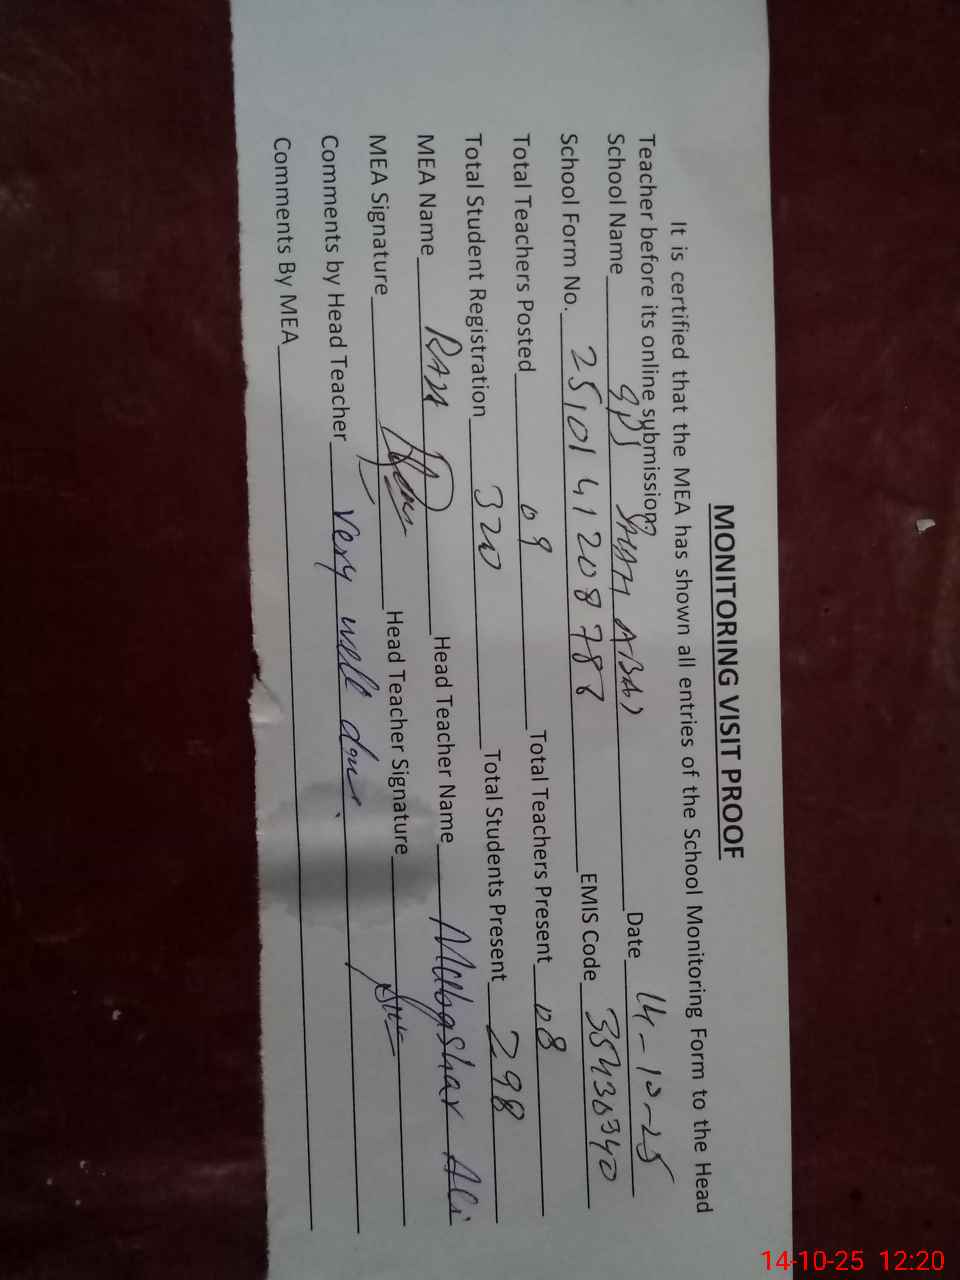 MONITORING VISIT PROOF
It is certified that the MEA has shown all entries of the School Monitoring Form to the Head
Teacher before its online submission.
School Name GPS Date 14-10-25
School Form No. EMIS Code
Total Teachers Posted 09 Total Teachers Present 08
Total Student Registration 320 Total Students Present 298
MEA Name Head Teacher Name Mubashar Ali
MEA Signature Head Teacher Signature
Comments by Head Teacher very well done.
Comments By MEA
14-10-25 12:20